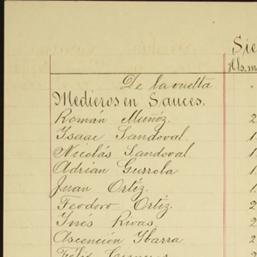 Sie
Hs. m
De la vuelta
Medieros en Sauces.
Román Muñoz. 2
Isaac Sandoval 1
Nicolás Sandoval 1
Adrián Gurrola 1
Juan Ortiz. 1
Teodoro Ortiz. 2
Inés Rivas 2
Ascención Ibarra 2
Félix